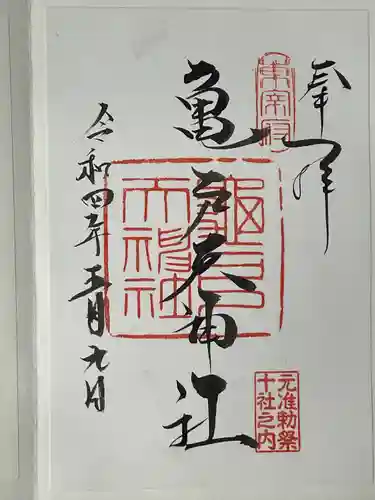 奉拝
東宰府
亀戸天神社
亀戸天神社
令和四年五月九日
元准勅祭
十社之内